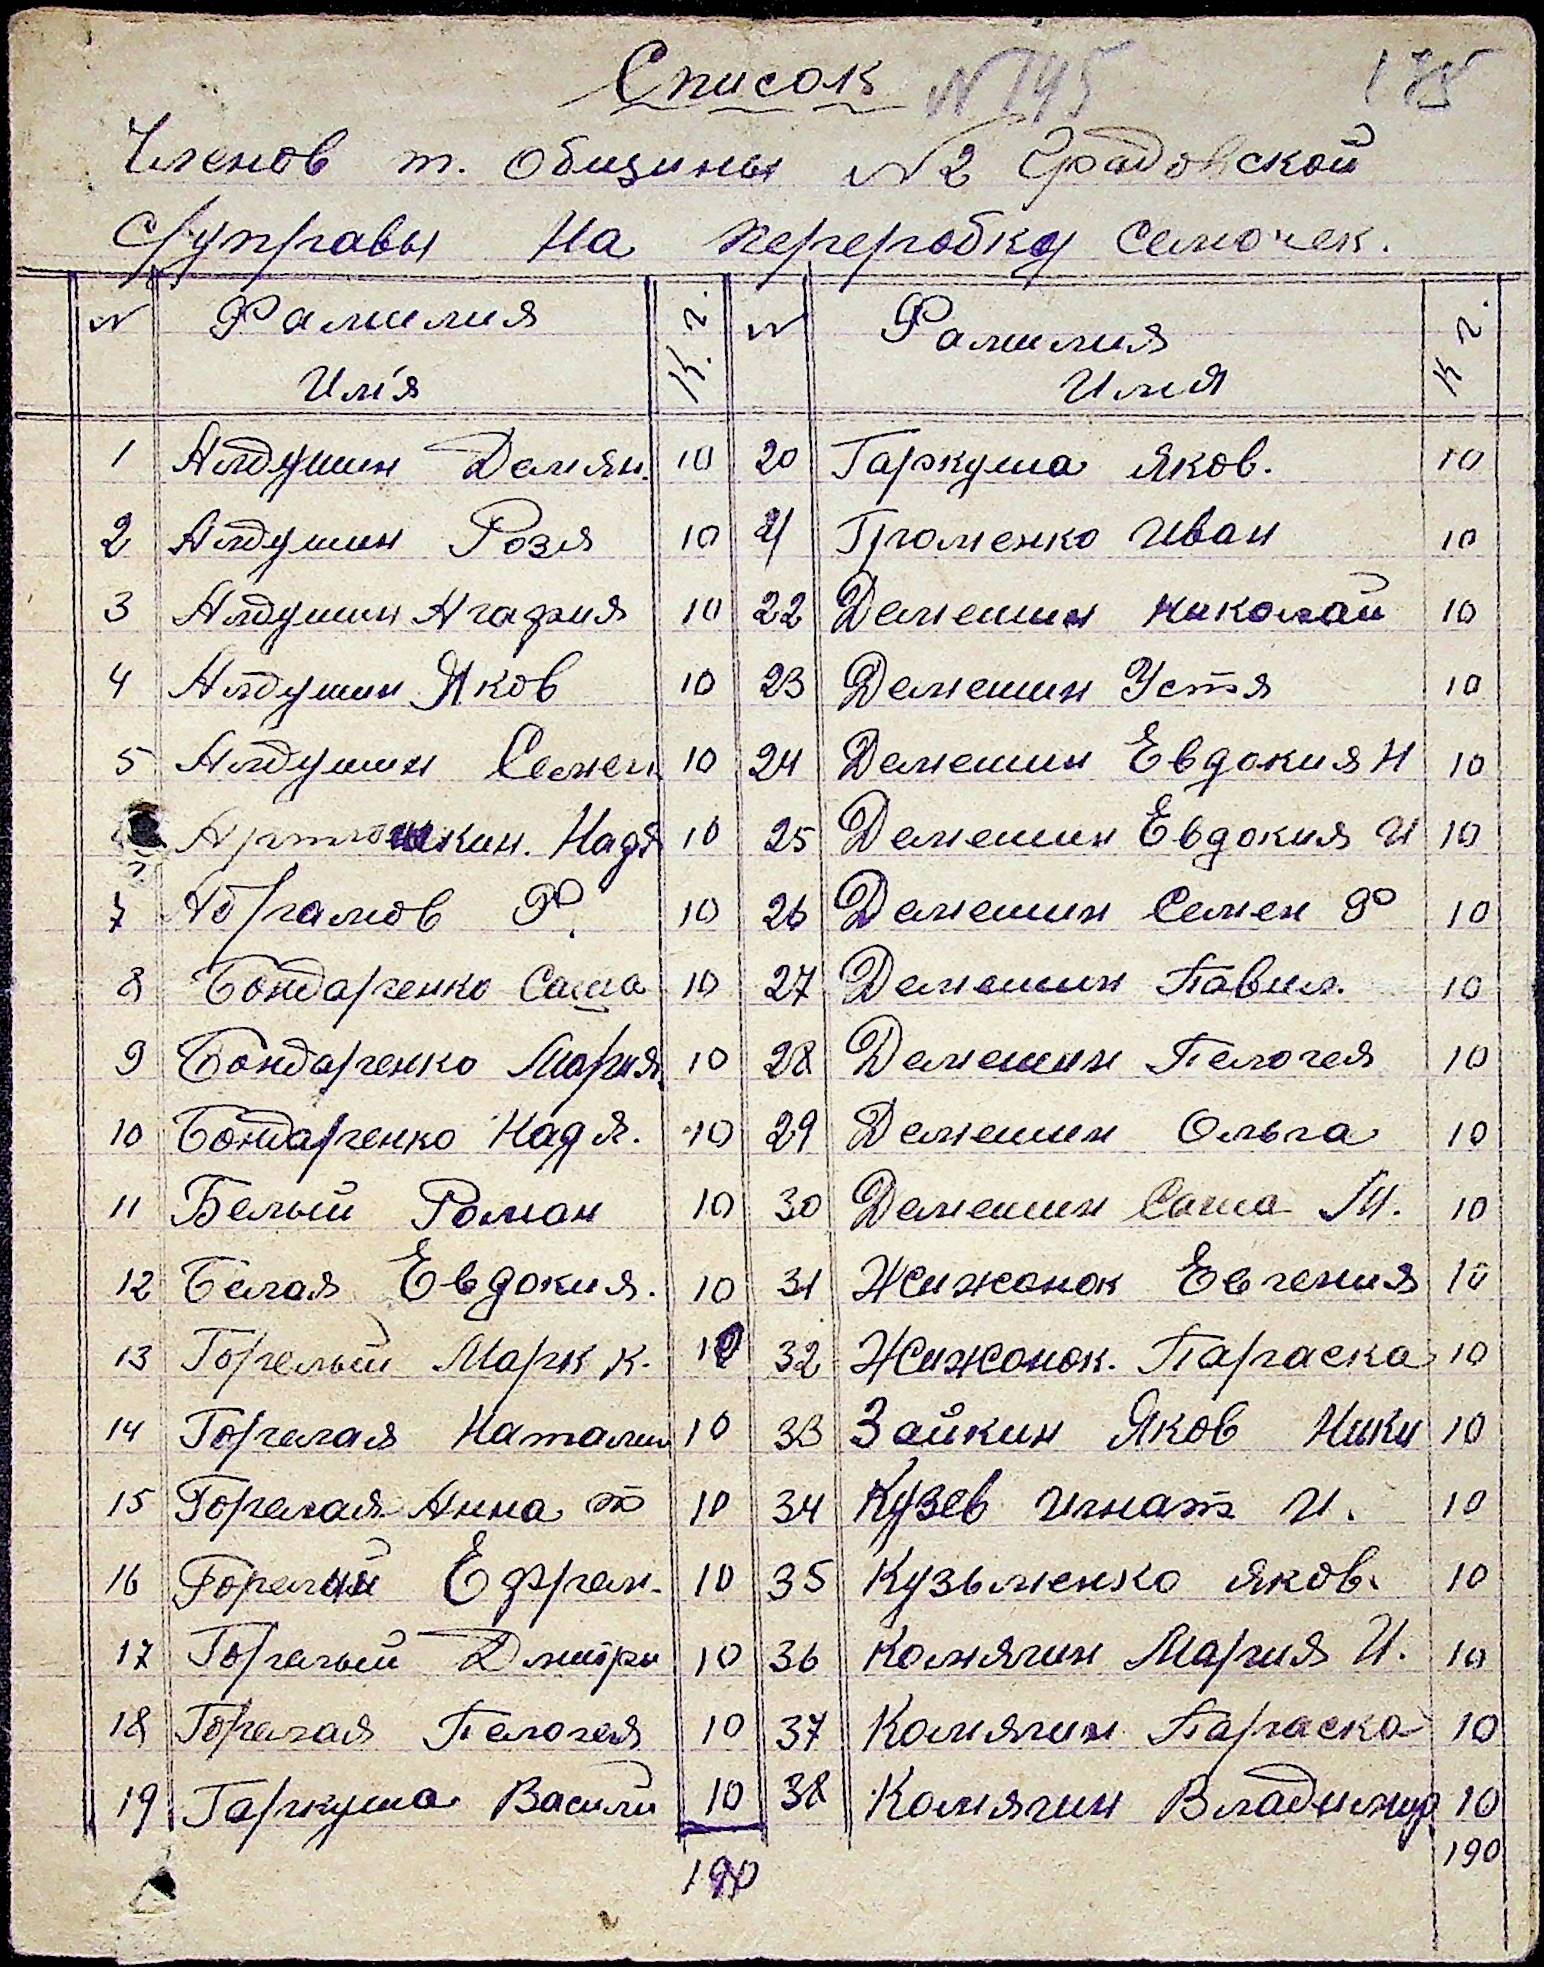 Список №145 175
Членов т. общины №2 Градовской
с/управы на переробку семочек.
№ Фамилия Имя К.г. № Фамилия Имя К г.
1 Алдушин Демян. 10 20 Гаркуша Яков. 10
2 Алдушин Розя 10 21 Громенко Иван 10
3 Алдушин Агафия 10 22 Демешин Николай 10
4 Алдушин Яков 10 23 Демешин Устя 10
5 Алдушин Семен 10 24 Демешин Евдокия Н 10
Артюшкин. Надя 10 25 Демешин Евдокия И 10
7 Абрамов Ф. 10 26 Демешин Семен Ф 10
8 Бондаренко Саша 10 27 Демешин Павил. 10
9 Бондаренко Мария. 10 28 Демешин Пелогея 10
10 Бондаренко Надя. 10 29 Демешин Ольга 10
11 Белый Роман 10 30 Демешин Саша М. 10
12 Белая Евдокия. 10 31 Жижонок Евгения 10
13 Горелый Марк К. 10 32 Жижонок. Параска 10
14 Горелая Наталия 10 33 Зайкин Яков Ники 10
15 Горелая Анна т 10 34 Кузев Игнат И. 10
16 Горелый Ефрем. 10 35 Кузьменко Яков. 10
17 Горелый Дмитри 10 36 Комягин Мария И. 10
18 Горелая Пелогея 10 37 Комягин Параска 10
19 Гаркуша Васили 10 38 Комягин Владимир 10
190 190